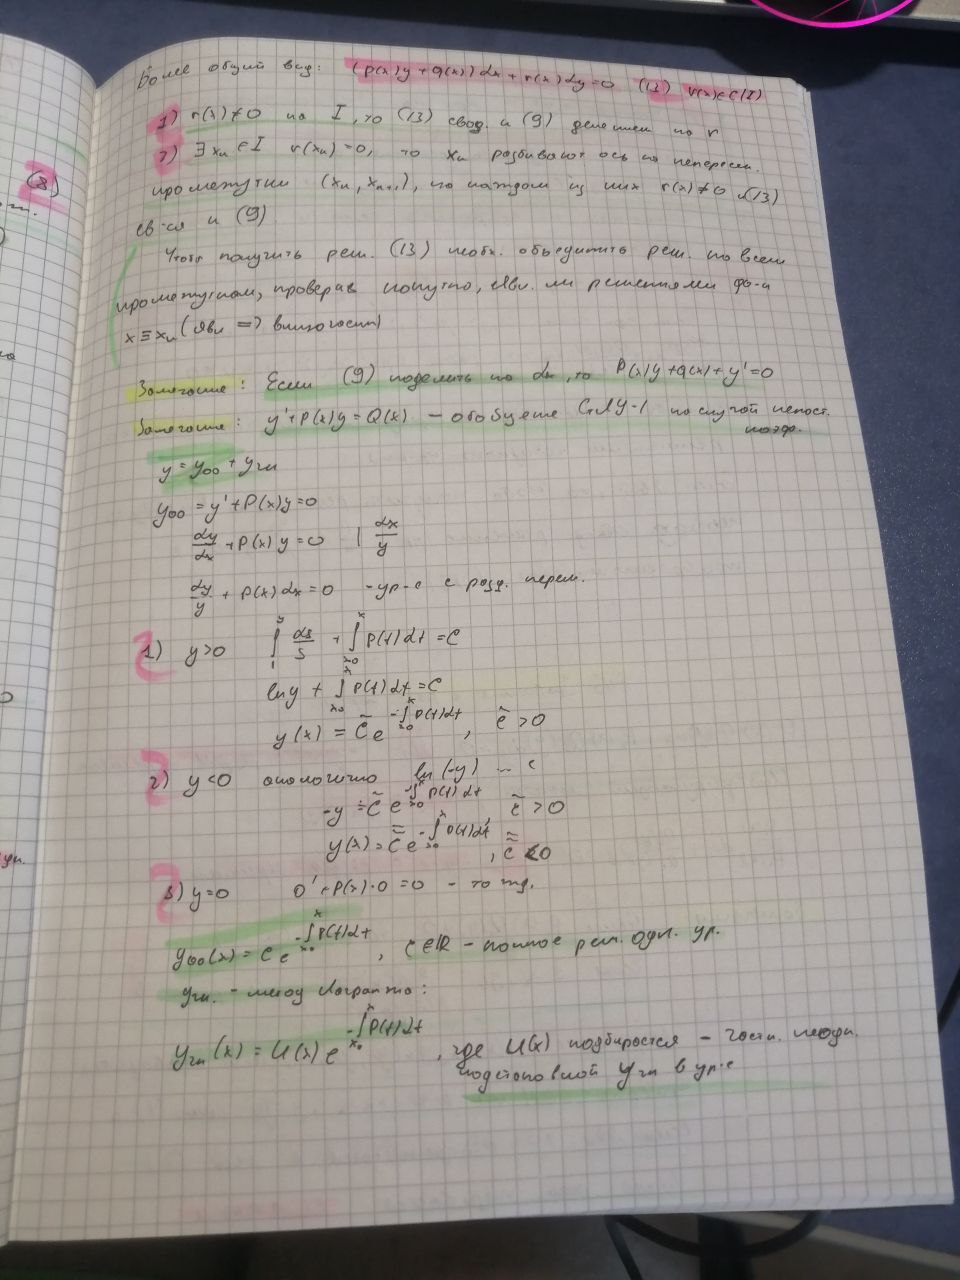 (8)
Более общий вид: (p(x)y+q(x))dx+r(x)dy=0 (13) r(x)∈C(I)
1) r(x)≠0 на I, то (13) свод. к (9) делением на r
2) ∃ xₖ∈I r(xₖ)=0, то xₖ разбивают ось на непересек.
промежутки (xₖ, xₖ₊₁), на каждом из них r(x)≠0 и (13)
св-ся к (9)
Чтобы получить реш. (13) необх. объединить реш. по всем
промежуткам, проверив попутно, явл. ли решениями ф-и
x≡xₖ (явл =>
Замечание: Если (9) поделить на dx, то P(x)y+Q(x)+y'=0
Замечание: y'+P(x)y=Q(x) – обобщение СтЛУ-1 на случай непост.
коэф.
y=y₀₀+yчн
y₀₀ = y'+P(x)y=0
dy/dx +P(x)y=0 | dx/y
dy/y + P(x)dx=0 -ур-е с разд. перем.
1) y>0 ∫₁^y ds/s + ∫ₓ₀^x P(t)dt=C
ln y + ∫ₓ₀^x P(t)dt=C
y(x) = C̃ e^(-∫ₓ₀^x P(t)dt), c̃>0
2) y<0 аналогично ln(-y) ... c
-y = C̃ e^(-∫ₓ₀^x P(t)dt) c̃>0
y(x)= C̃̃ e^(-∫ₓ₀^x P(t)dt), c̃̃<0
3) y=0 0'+P(x)·0=0 – то тд.
y₀₀(x)=C e^(-∫ₓ₀^x P(t)dt), C∈ℝ – полное реш. одн. ур.
yчн. – метод Лагранжа:
yчн(x) = U(x) e^(-∫ₓ₀^x P(t)dt), где U(x) подбирается – частн. неодн.
подстановкой yчн в ур-е